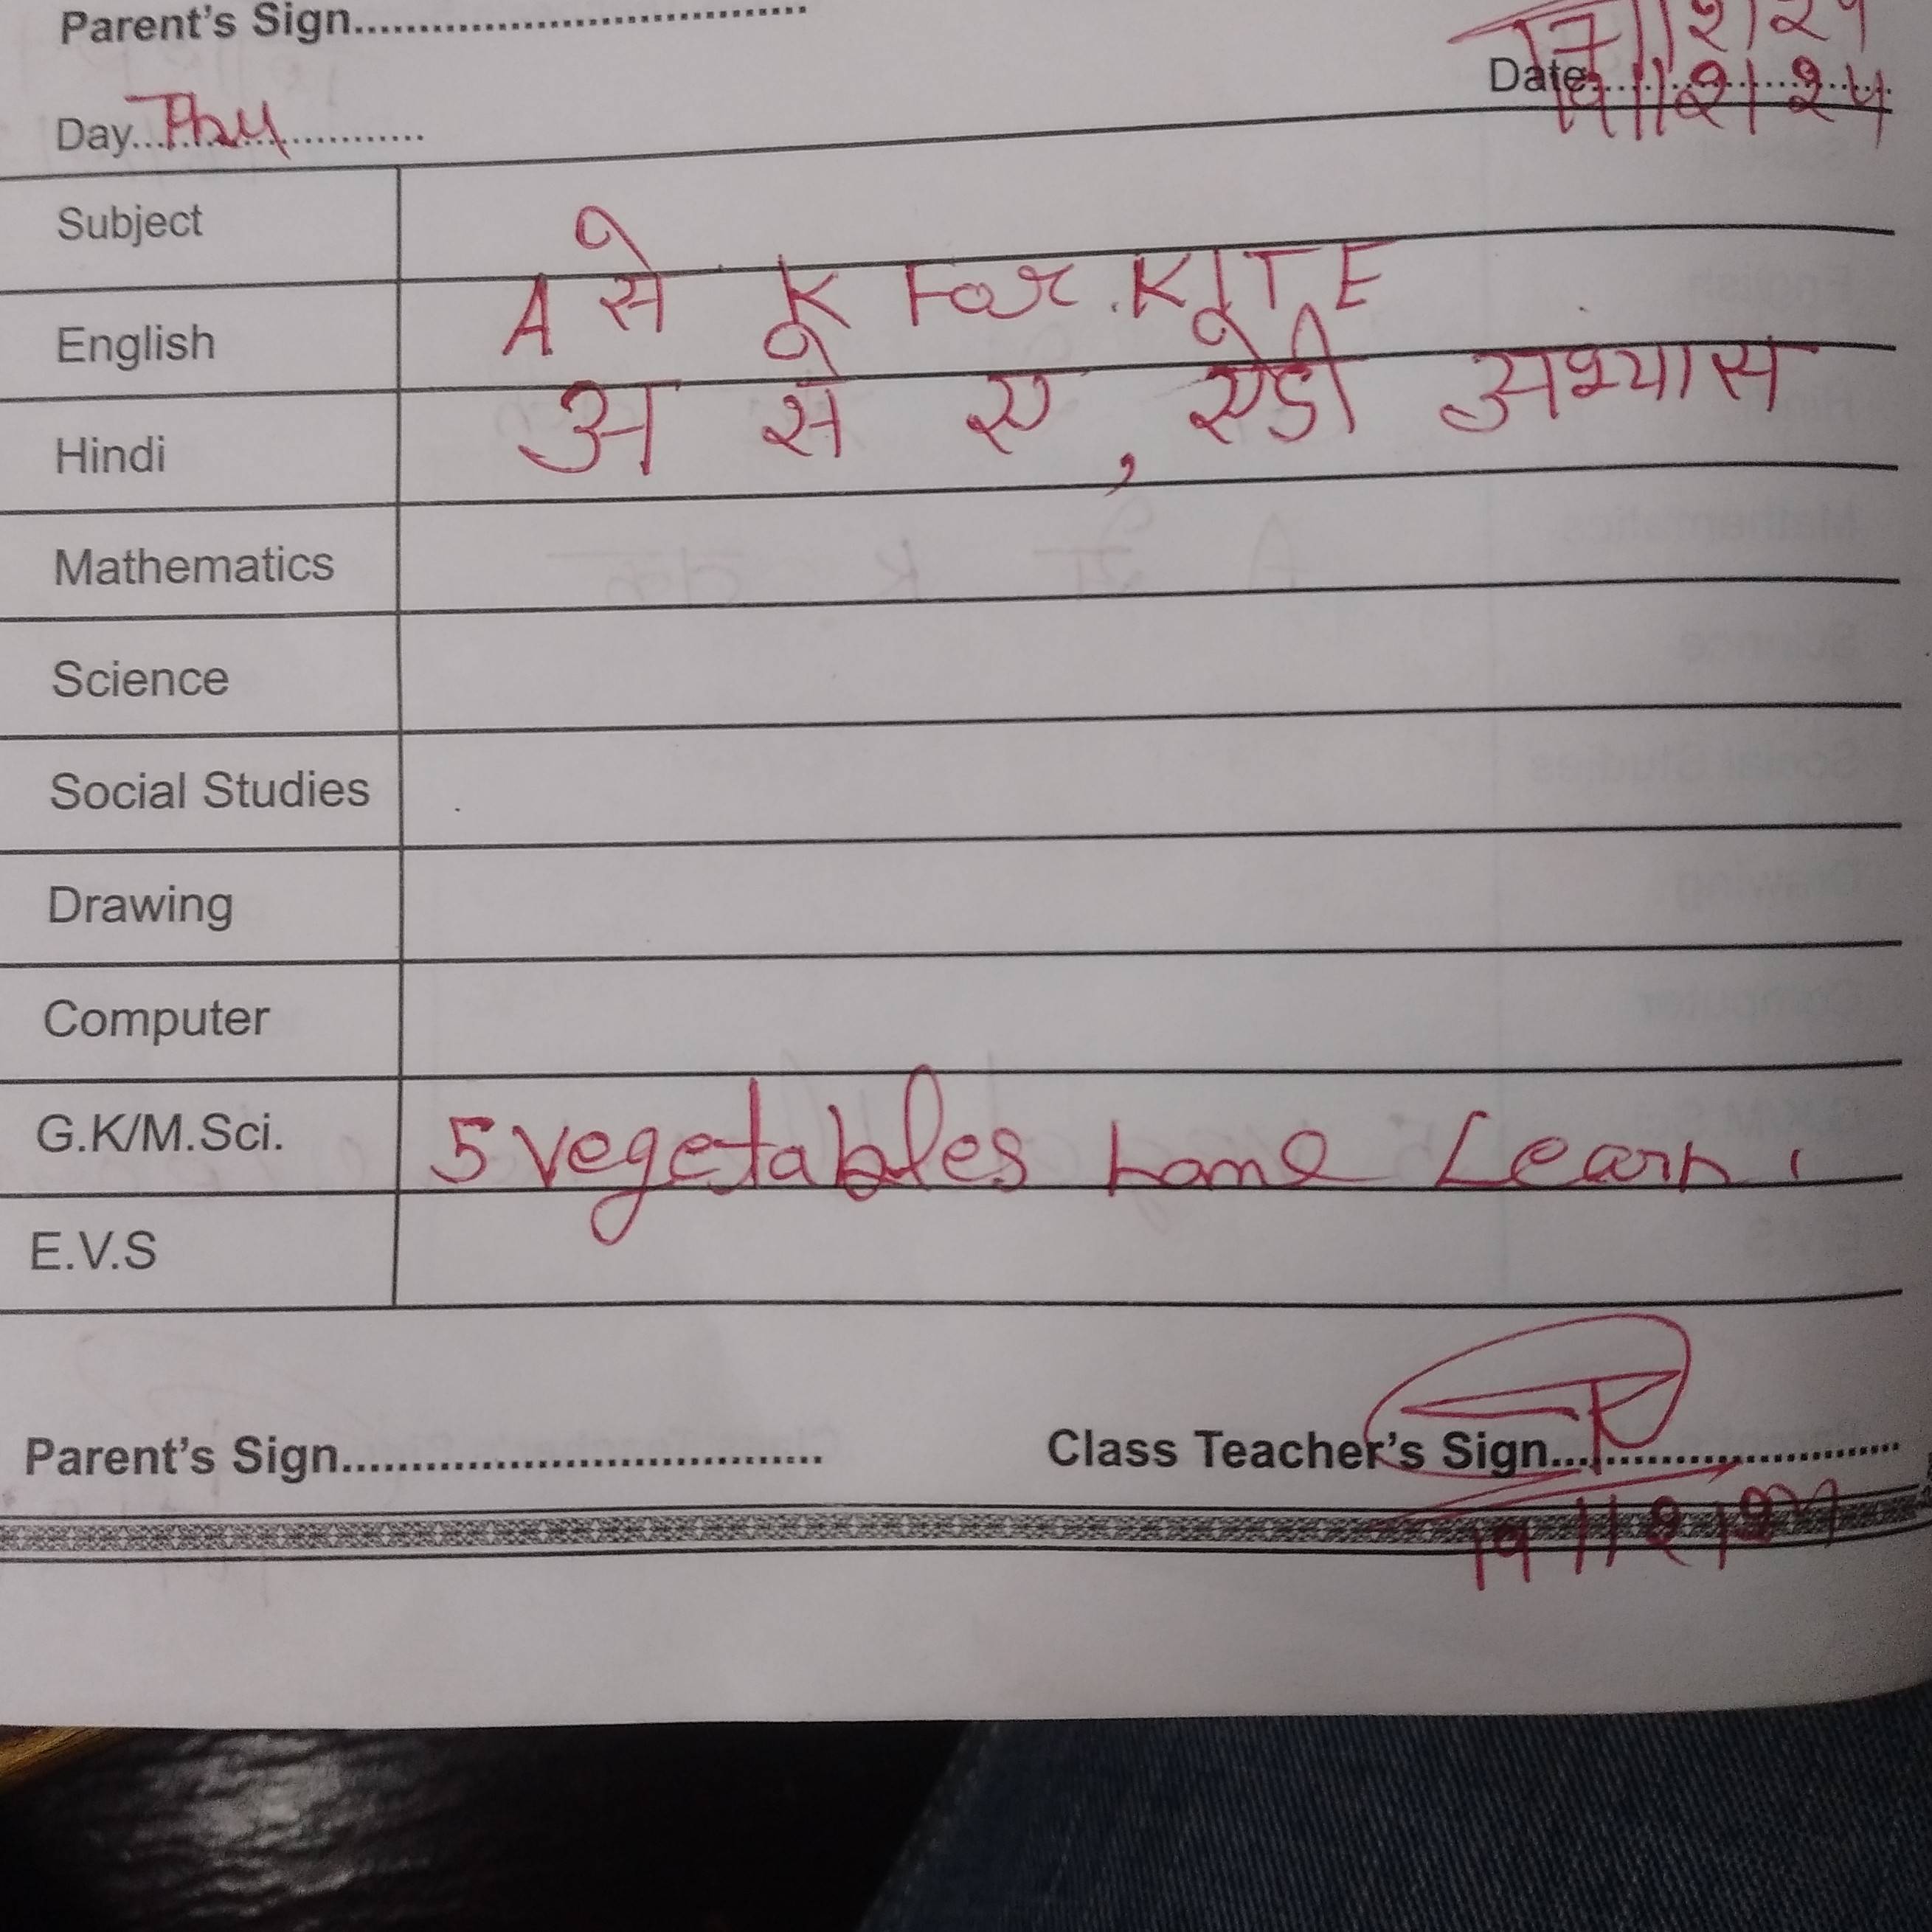 Parent's Sign........................................
17/12/24
Day...Thu............ Date...19/12/24
Subject
English A से K For KITE
Hindi अ से ए, एड़ी अभ्यास
Mathematics
Science
Social Studies
Drawing
Computer
G.K/M.Sci. 5 vegetables name Learn.
E.V.S
Parent's Sign........................................ Class Teacher's Sign........................................
19/12/24